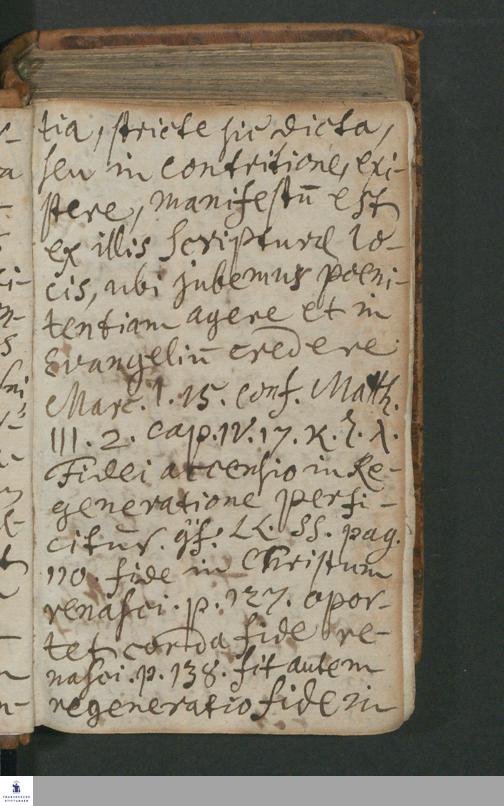 tia, stricte sic dicta,
seu in contritione, exi-
stere, manifestū est
ex illis Scripturæ lo-
cis, ubi jubemur poeni-
tentiam agere et in
Evangeliū credere
Marc. I. 15. conf. Matth.
III. 2. cap. IV. 17. κ. τ. λ.
Fidei accensio in Re-
generatione perfi-
citur. LL. SS. pag.
110. fide in Christum
renasci. p. 127. opor-
tet corda fide re-
nasci. p. 138. fit autem
regeneratio fide in
FRANCKESCHE
STIFTUNGEN